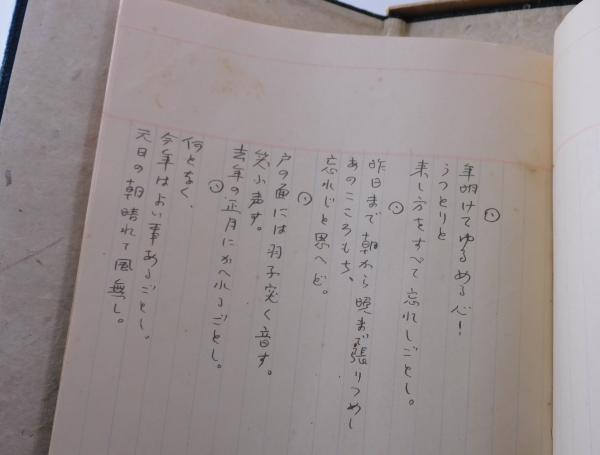 ◎
年明けてゆるめる心！
うつとりと
来し方をすべて忘れしごとし。
◎
昨日まで朝から晩まで張りつめし
あのこころもち、
忘れじと思へど。
◎
戸の面には羽子突く音す。
笑ふ声す。
去年の正月にかへれるごとし。
◎
何となく、
今年はよい事あるごとし。
元日の朝晴れて風無し。